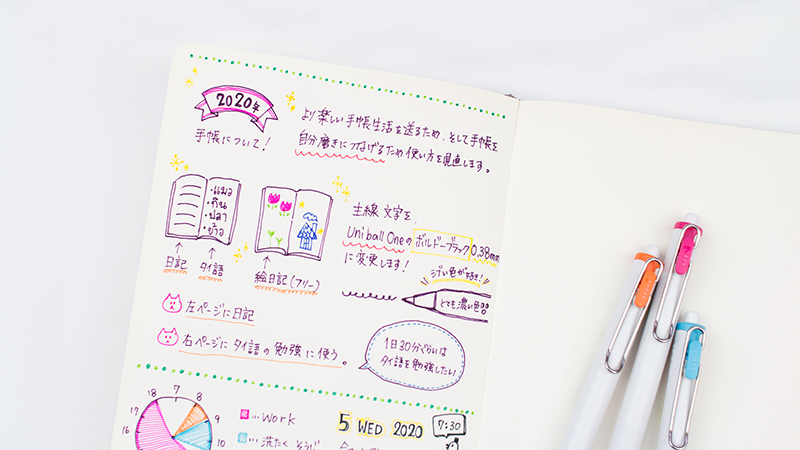 2020年
手帳について!
より楽しい手帳生活を送るため、そして手帳を
自分磨きにつなげるため使い方を見直します。
・แมว
・กิน
・ปลา
・ข้าว
日記
タイ語
絵日記(フリー)
主線 文字を、
Uniball Oneの ボルドーブラック 0.38mm
に変更します!
シブい色が好き!
とても濃い色!!
左ページに日記
右ページに タイ語の勉強に使う。
1日30分ぐらいは
タイ語を勉強したい!
18 7 8
17 9
16 10
…Work
…洗たく そうじ
5 WED 2020
7:30